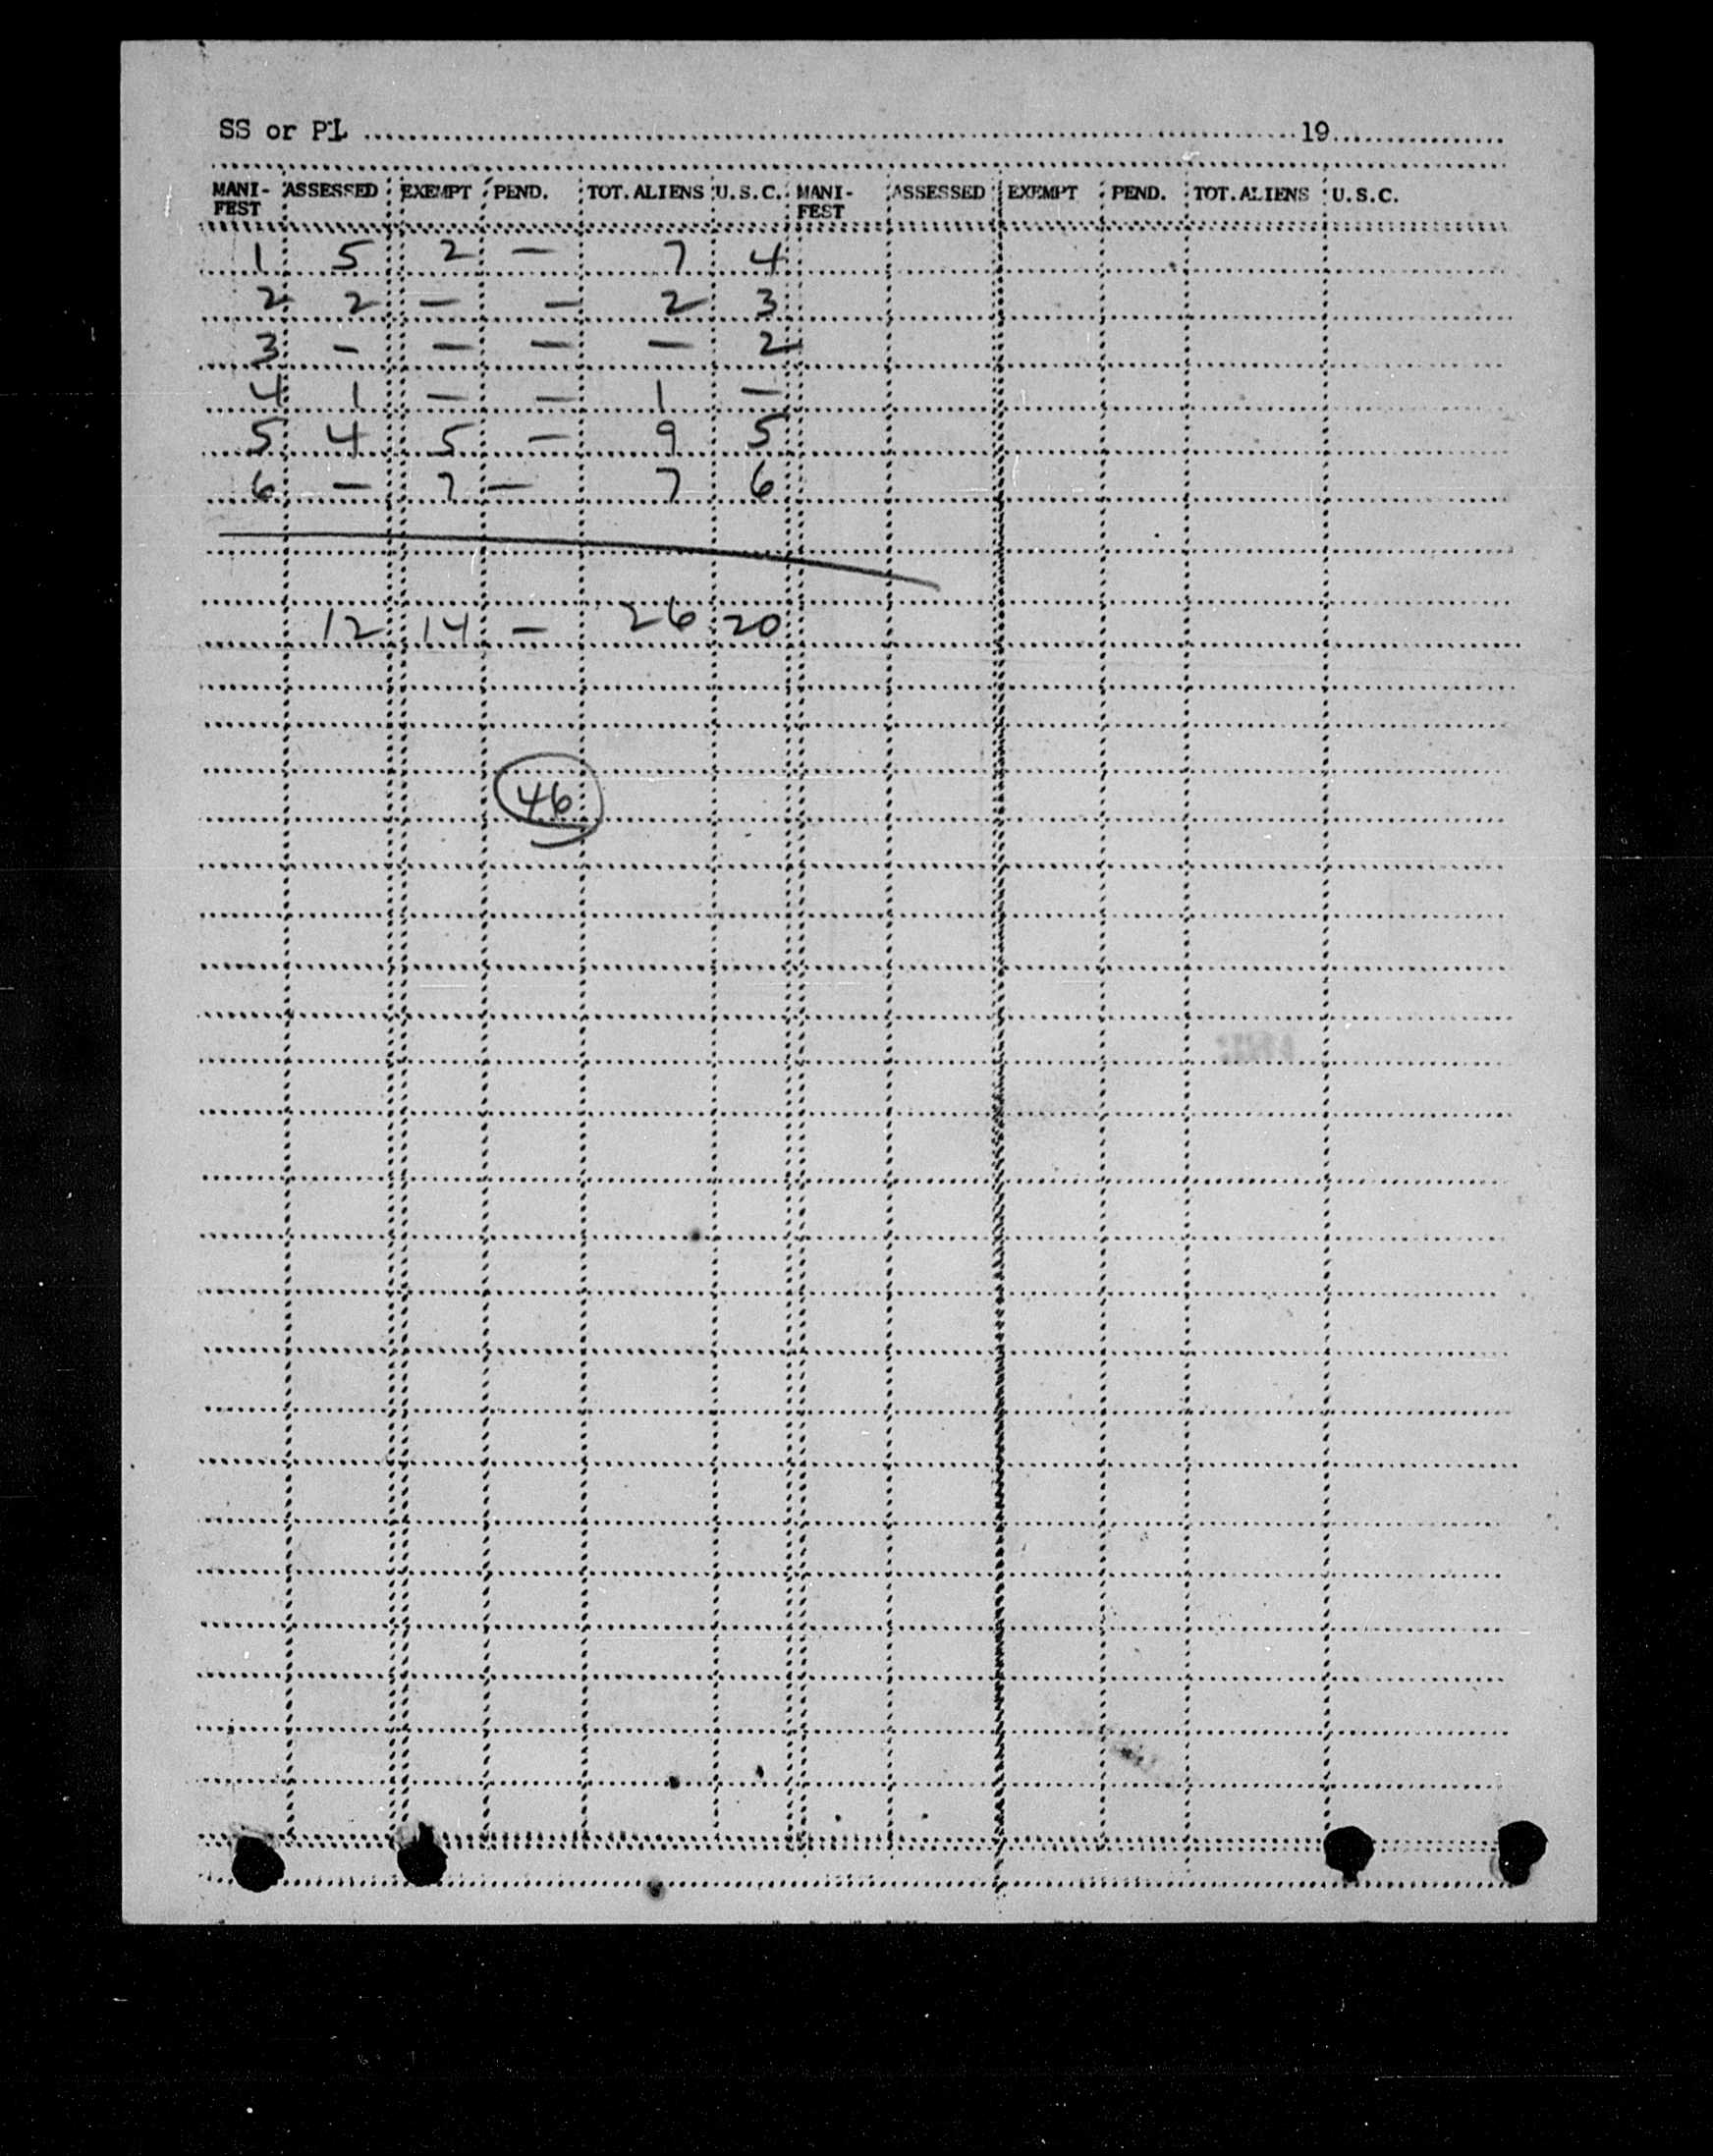 SS or PL 19
MANI-FEST ASSESSED EXEMPT PEND. TOT. ALIENS U.S.C. MANI-FEST ASSESSED EXEMPT PEND. TOT. ALIENS U.S.C.
1 5 2 — 7 4
2 2 — — 2 3
3 — — — — 2
4 1 — — 1 —
5 4 5 — 9 5
6 — 7 — 7 6
12 14 — 26 20
46